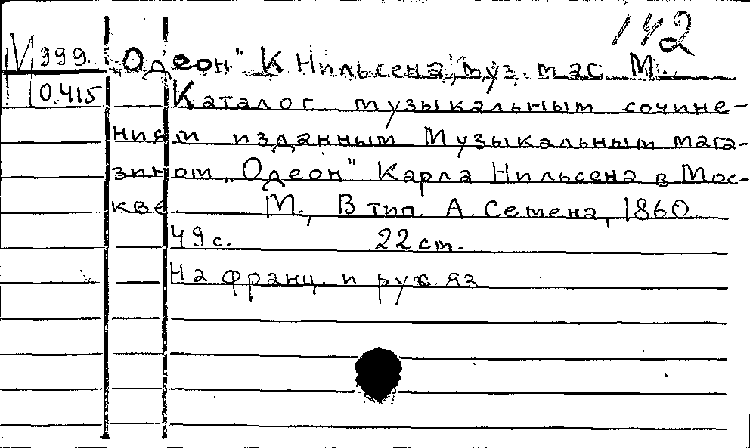 142
М 999. „Одеон" К. Нильсена, муз. маг. М.
0.415 Каталог музыкальным сочине-
ниям изданным Музыкальным мага-
зином „Одеон" Карла Нильсена в Мос-
кве М., В тип. А. Семена, 1860.
49 с. 22 см.
На франц. и рус. яз.